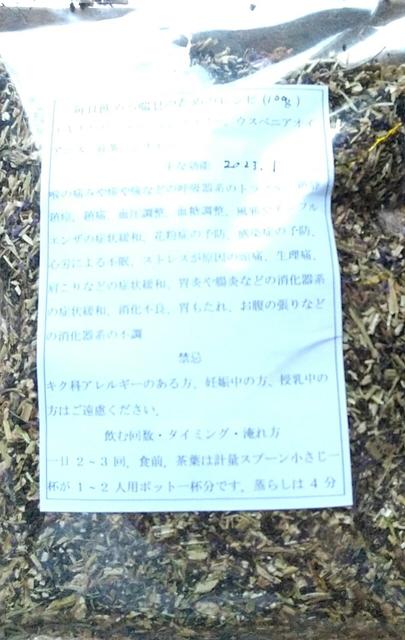 毎日飲める喘息のためのブレンド(100g)
ウスベニアオイ
主な効能 2023.1
喉の痛みや咳や痰などの呼吸器系のトラブル、
鎮痙、鎮痛、血圧調整、血糖調整、風邪やインフル
エンザの症状緩和、花粉症の予防、感染症の予防、
心労による不眠、ストレスが原因の頭痛、生理痛、
肩こりなどの症状緩和、胃炎や腸炎などの消化器系
の症状緩和、消化不良、胃もたれ、お腹の張りなど
の消化器系の不調
禁忌
キク科アレルギーのある方、妊娠中の方、授乳中の
方はご遠慮ください。
飲む回数・タイミング・淹れ方
一日2~3回、食前、茶葉は計量スプーン小さじ一
杯が1~2人用ポット一杯分です。蒸らしは4分